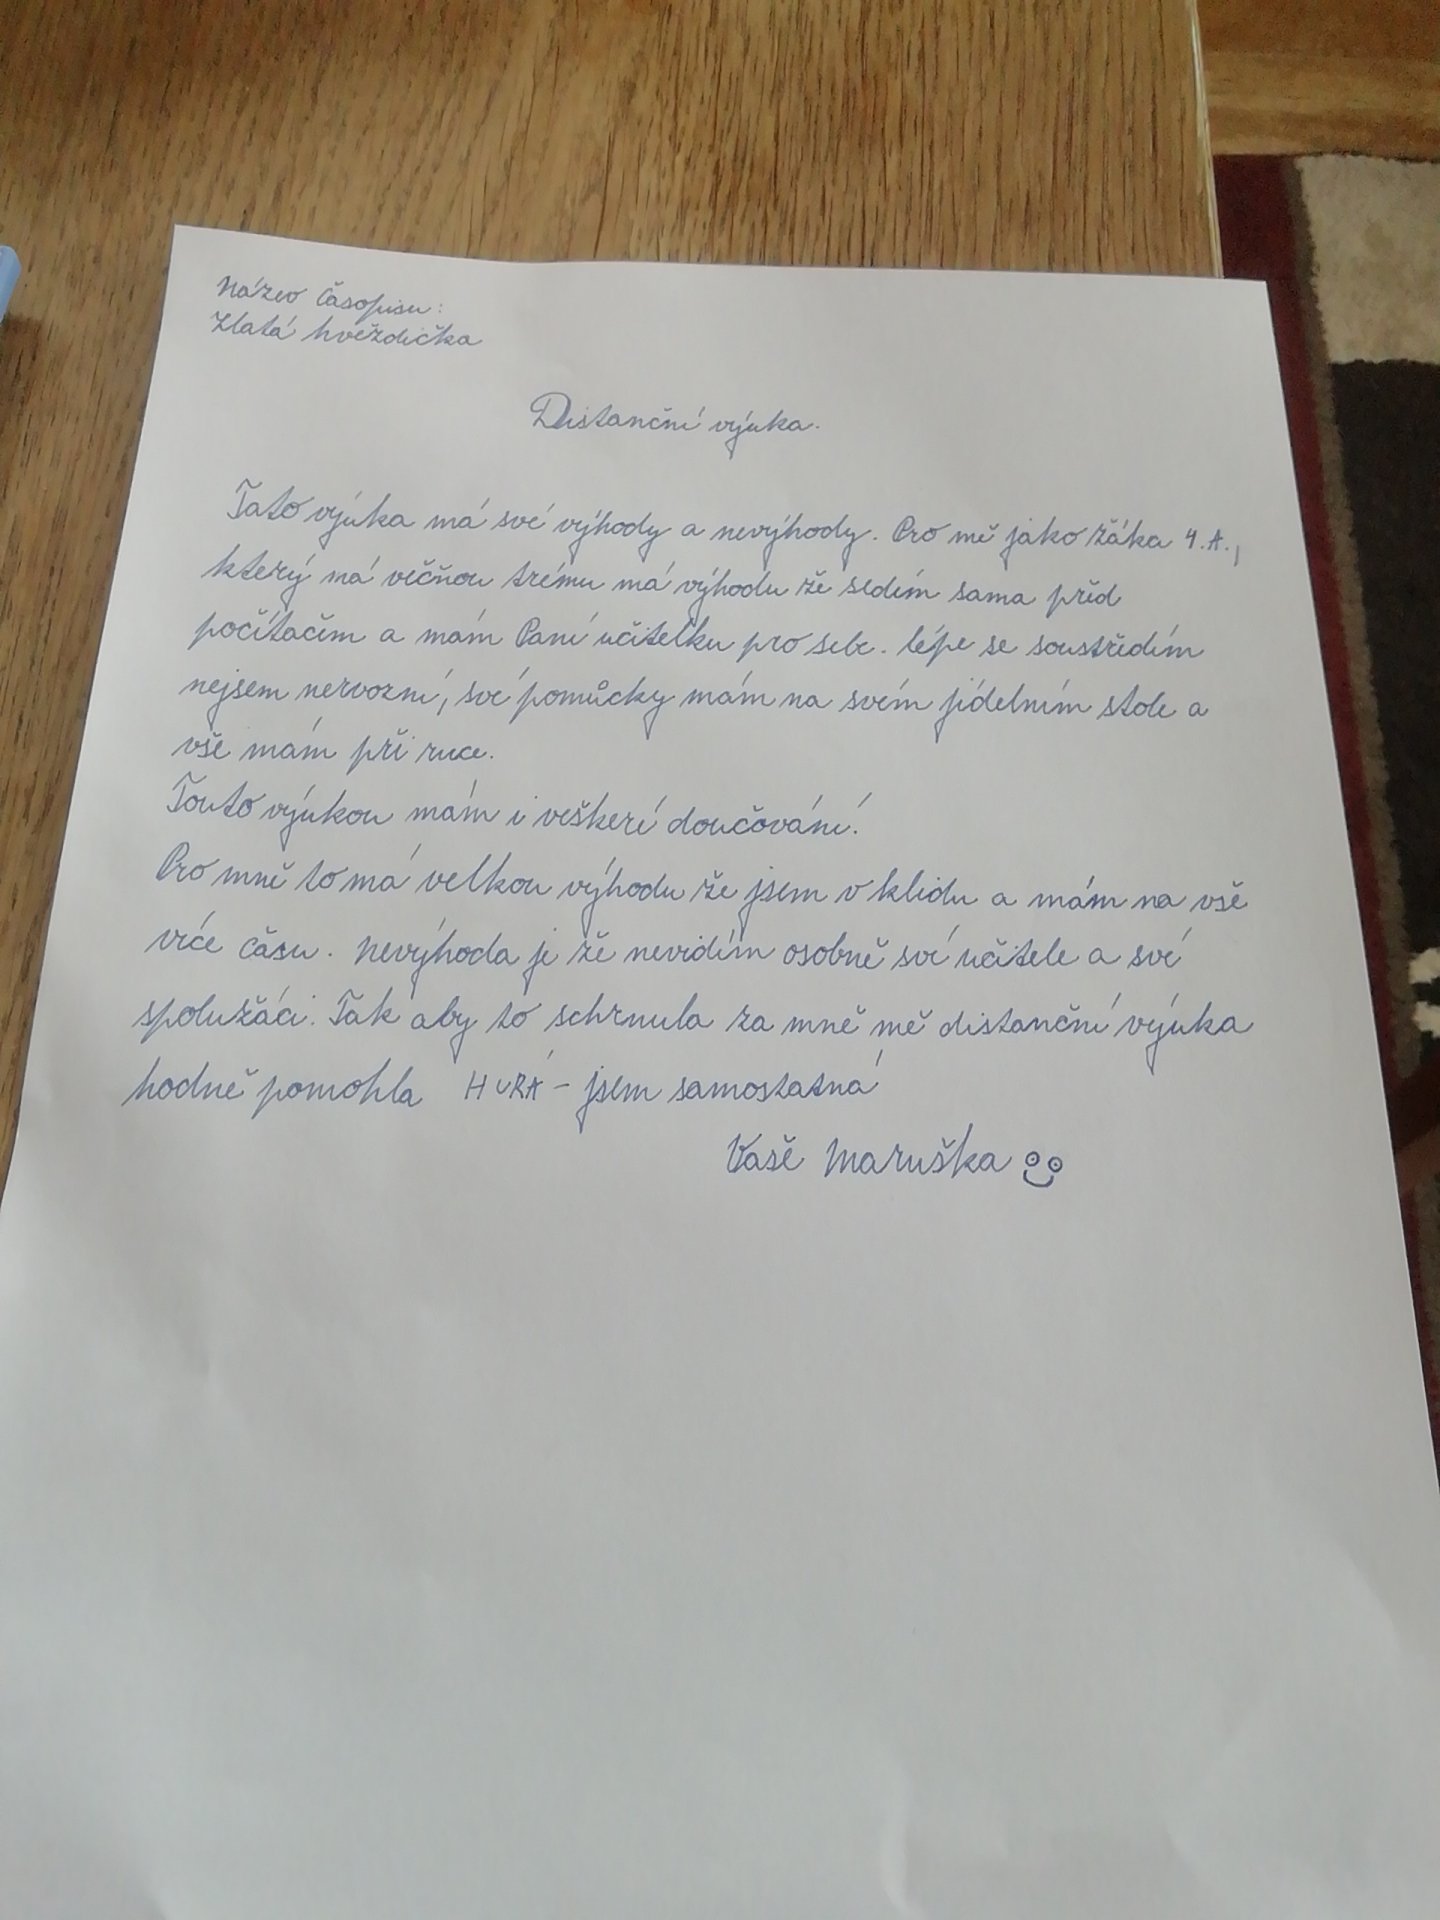 Název časopisu:
Zlatá hvěždička
Distanční výuka.
Tato výuka má své výhody a nevýhody. Pro mě jako žáka 4.A.,
který má věčňou trému má výhodu že sedím sama před
počítačem a mám Paní učitelku pro sebe. lépe se soustředím
nejsem nervozní, své pomůcky mám na svém jídelním stole a
vše mám při ruce.
Touto výukou mám i veškeré doučování.
Pro mně to má velkou výhodu že jsem v klidu a mám na vše
více času. Nevýhoda je že nevidím osobně své učitele a své
spolužáci. Tak aby to schrnula za mně mě distanční výuka
hodně pomohla HURÁ - jsem samostatná
Vaše Maruška